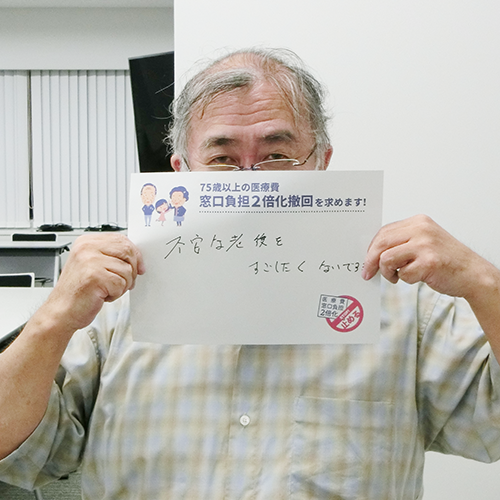 75歳以上の医療費
窓口負担2倍化撤回を求めます!
不安な老後を
すごしたくないです
医療費
窓口負担
2倍化
止める